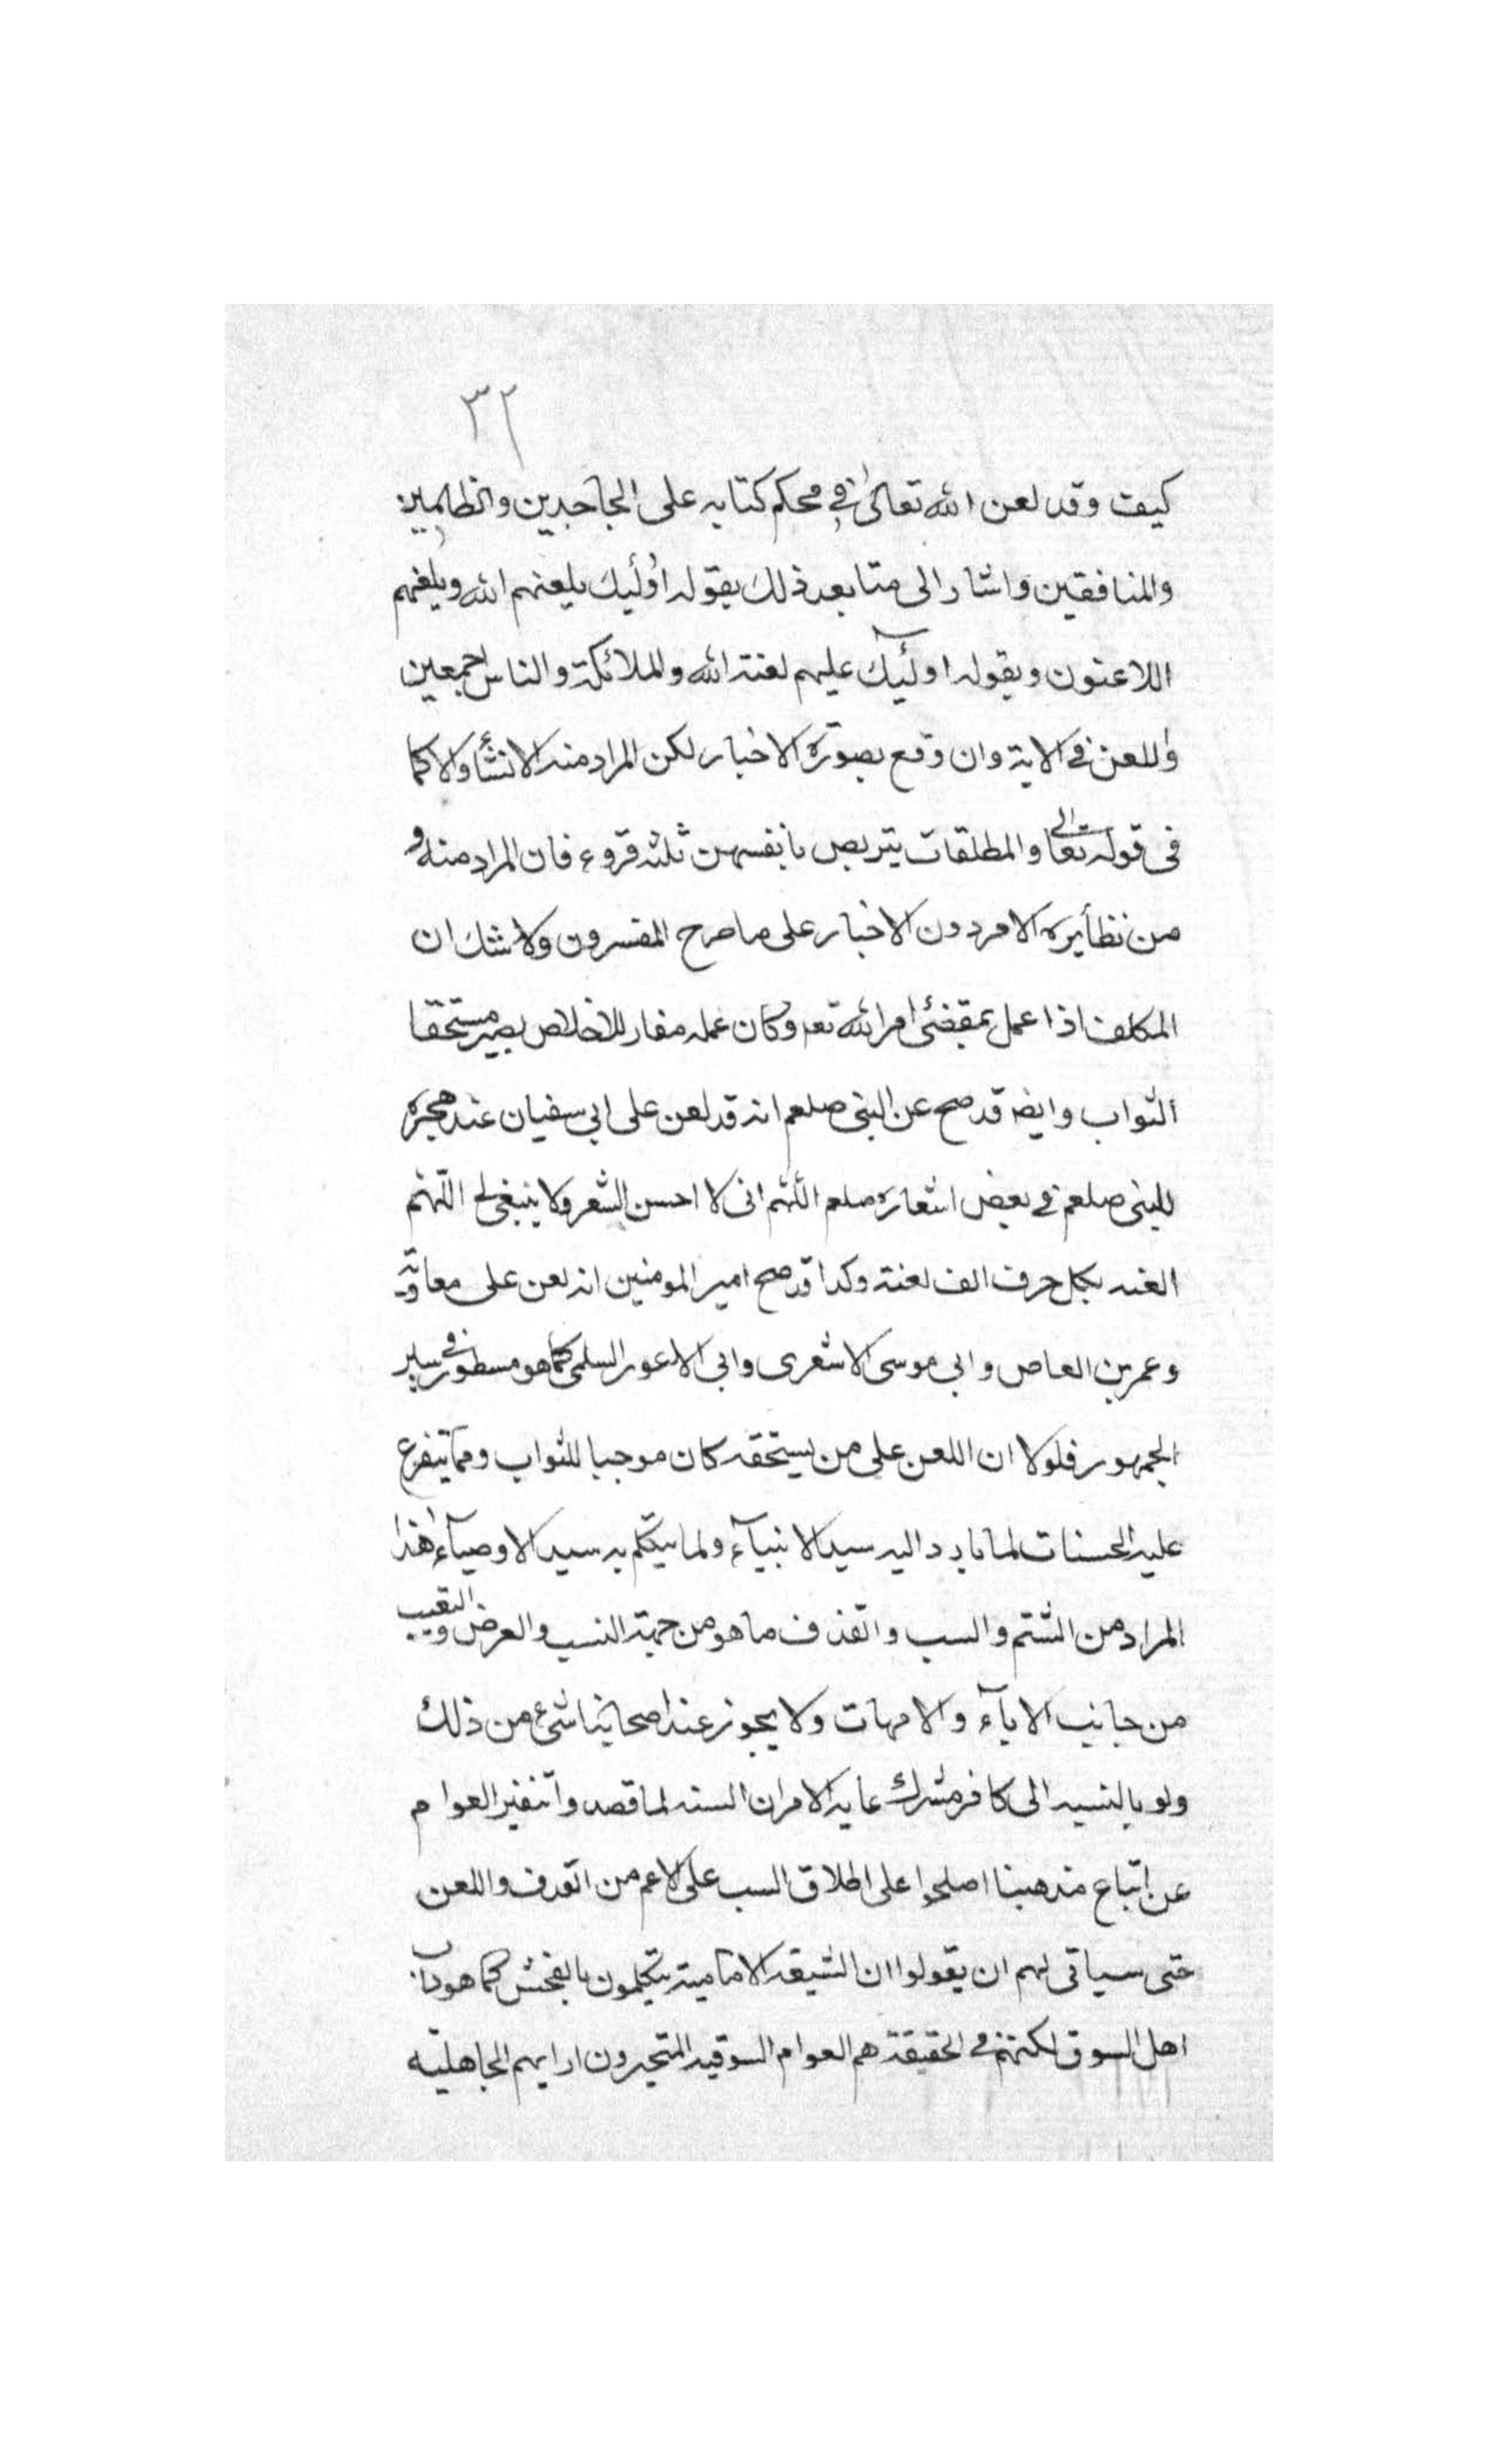 ٣٢
كيف وقد لعن الله تعالى في محكم كتابه على الجاحدين والظالمين
والمنافقين واشار الى متابعد ذلك بقوله اولٓئك يلعنهم الله ويلعنهم
اللاعنون وبقوله اولٓئك عليهم لعنة الله والملائكة والناس اجمعين
واللعن في الاية وان وقع بصورة الاخبار لكن المراد منه الانشاء والا كما
في قوله تعالى والمطلقات يتربصن بانفسهن ثلثه قروء فان المراد منه و
من نظائره الامر دون الاخبار على ما صرح المفسرون ولا شك ان
المكلف اذا عمل بمقتضى امر الله تعه وكان عمله مقار للاخلاص يصير مستحقا
الثواب وايضه قد صح عن النبي صلعم انه قد لعن على ابي سفيان عند هجره
للنبي صلعم في بعض اشعاره صلعم اللهم اني لا احسن الشعر ولا ينبغي لي اللهم
العنه بكل حرف الف لعنة وكذا قد صح امير المومنين انه لعن على معاوية
وعمر بن العاص وابي موسى الاشعرى وابي الاعور السلمى كما هو مسطور في سير
الجمهور فلولا ان اللعن على من يستحقه كان موجبا للثواب ومما يتفرع
عليه الحسنات لما بادر اليه سيد الانبيآء ولما يتكلم به سيد الاوصيآء هذا
المراد من الشتم والسب والقذف ما هو من جهة النسب والعرض والتعيب
من جانب الابآء والامهات ولا يجوز عند اصحابنا شيء من ذلك
ولو بالنسبه الى كافر مشرك غايه الامر ان السنه لما قصدوا تنفير العوام
عن اتباع مذهبنا اصلحوا على اطلاق السب على الاعم من القذف واللعن
حتى سياتى لهم ان يقولوا ان الشيعه الامامية يتكلمون بالفحش كما هو داب
اهل السوق لكنهم في الحقيقة هم العوام السوقيه المتحيرون ارايهم الجاهلية